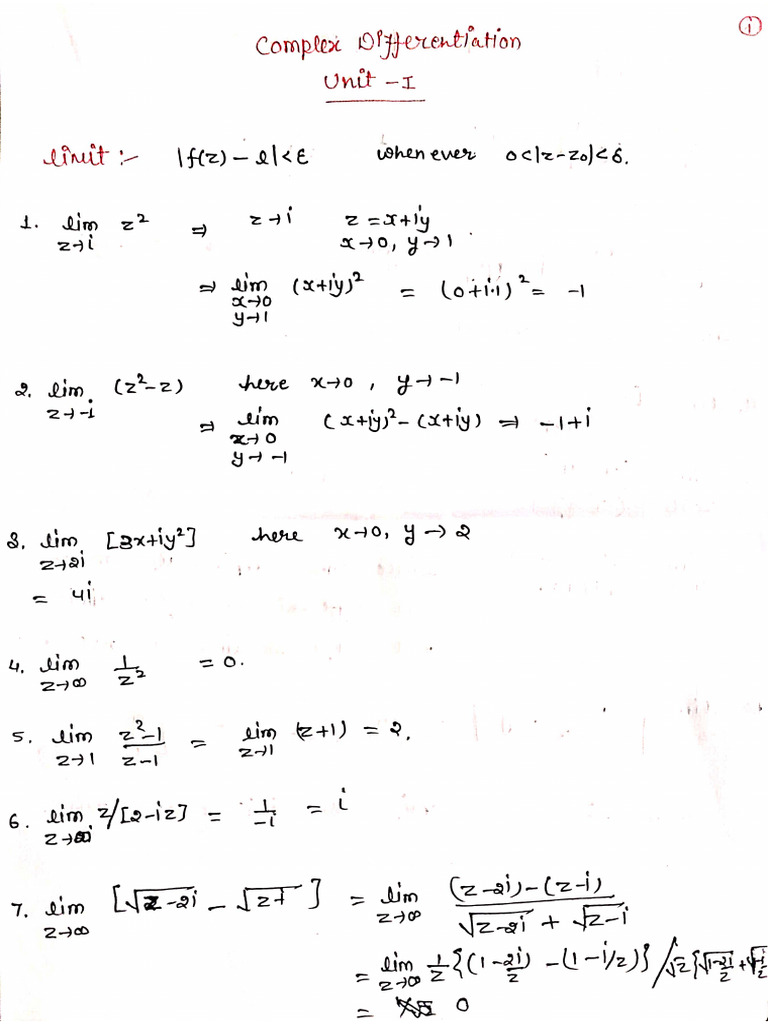 ①
Complex Differentiation
Unit - I
limit :- |f(z) - l| < ε when ever 0<|z-z0|<δ.
1. lim z→i z² ⇒ z→i z = x+iy
x→0, y→1.
⇒ lim x→0 y→1 (x+iy)² = (0+i.1)² = -1
2. lim z→-i (z²-z) here x→0, y→-1
⇒ lim x→0 y→-1 (x+iy)² - (x+iy) ⇒ -1+i
3. lim z→2i [3x+iy²] here x→0, y→2
= 4i
4. lim z→∞ 1/z² = 0.
5. lim z→1 z²-1/z-1 = lim z→1 (z+1) = 2.
6. lim z→∞ z/[2-iz] = 1/-i = i
7. lim z→∞ [√z-2i - √z-i] = lim z→∞ (z-2i)-(z-i)/√z-2i + √z-i
= lim z→∞ 1/z {(1-2i/z) - (1-i/z)} / √z {√1-2i/z + √1-i/z
= 0